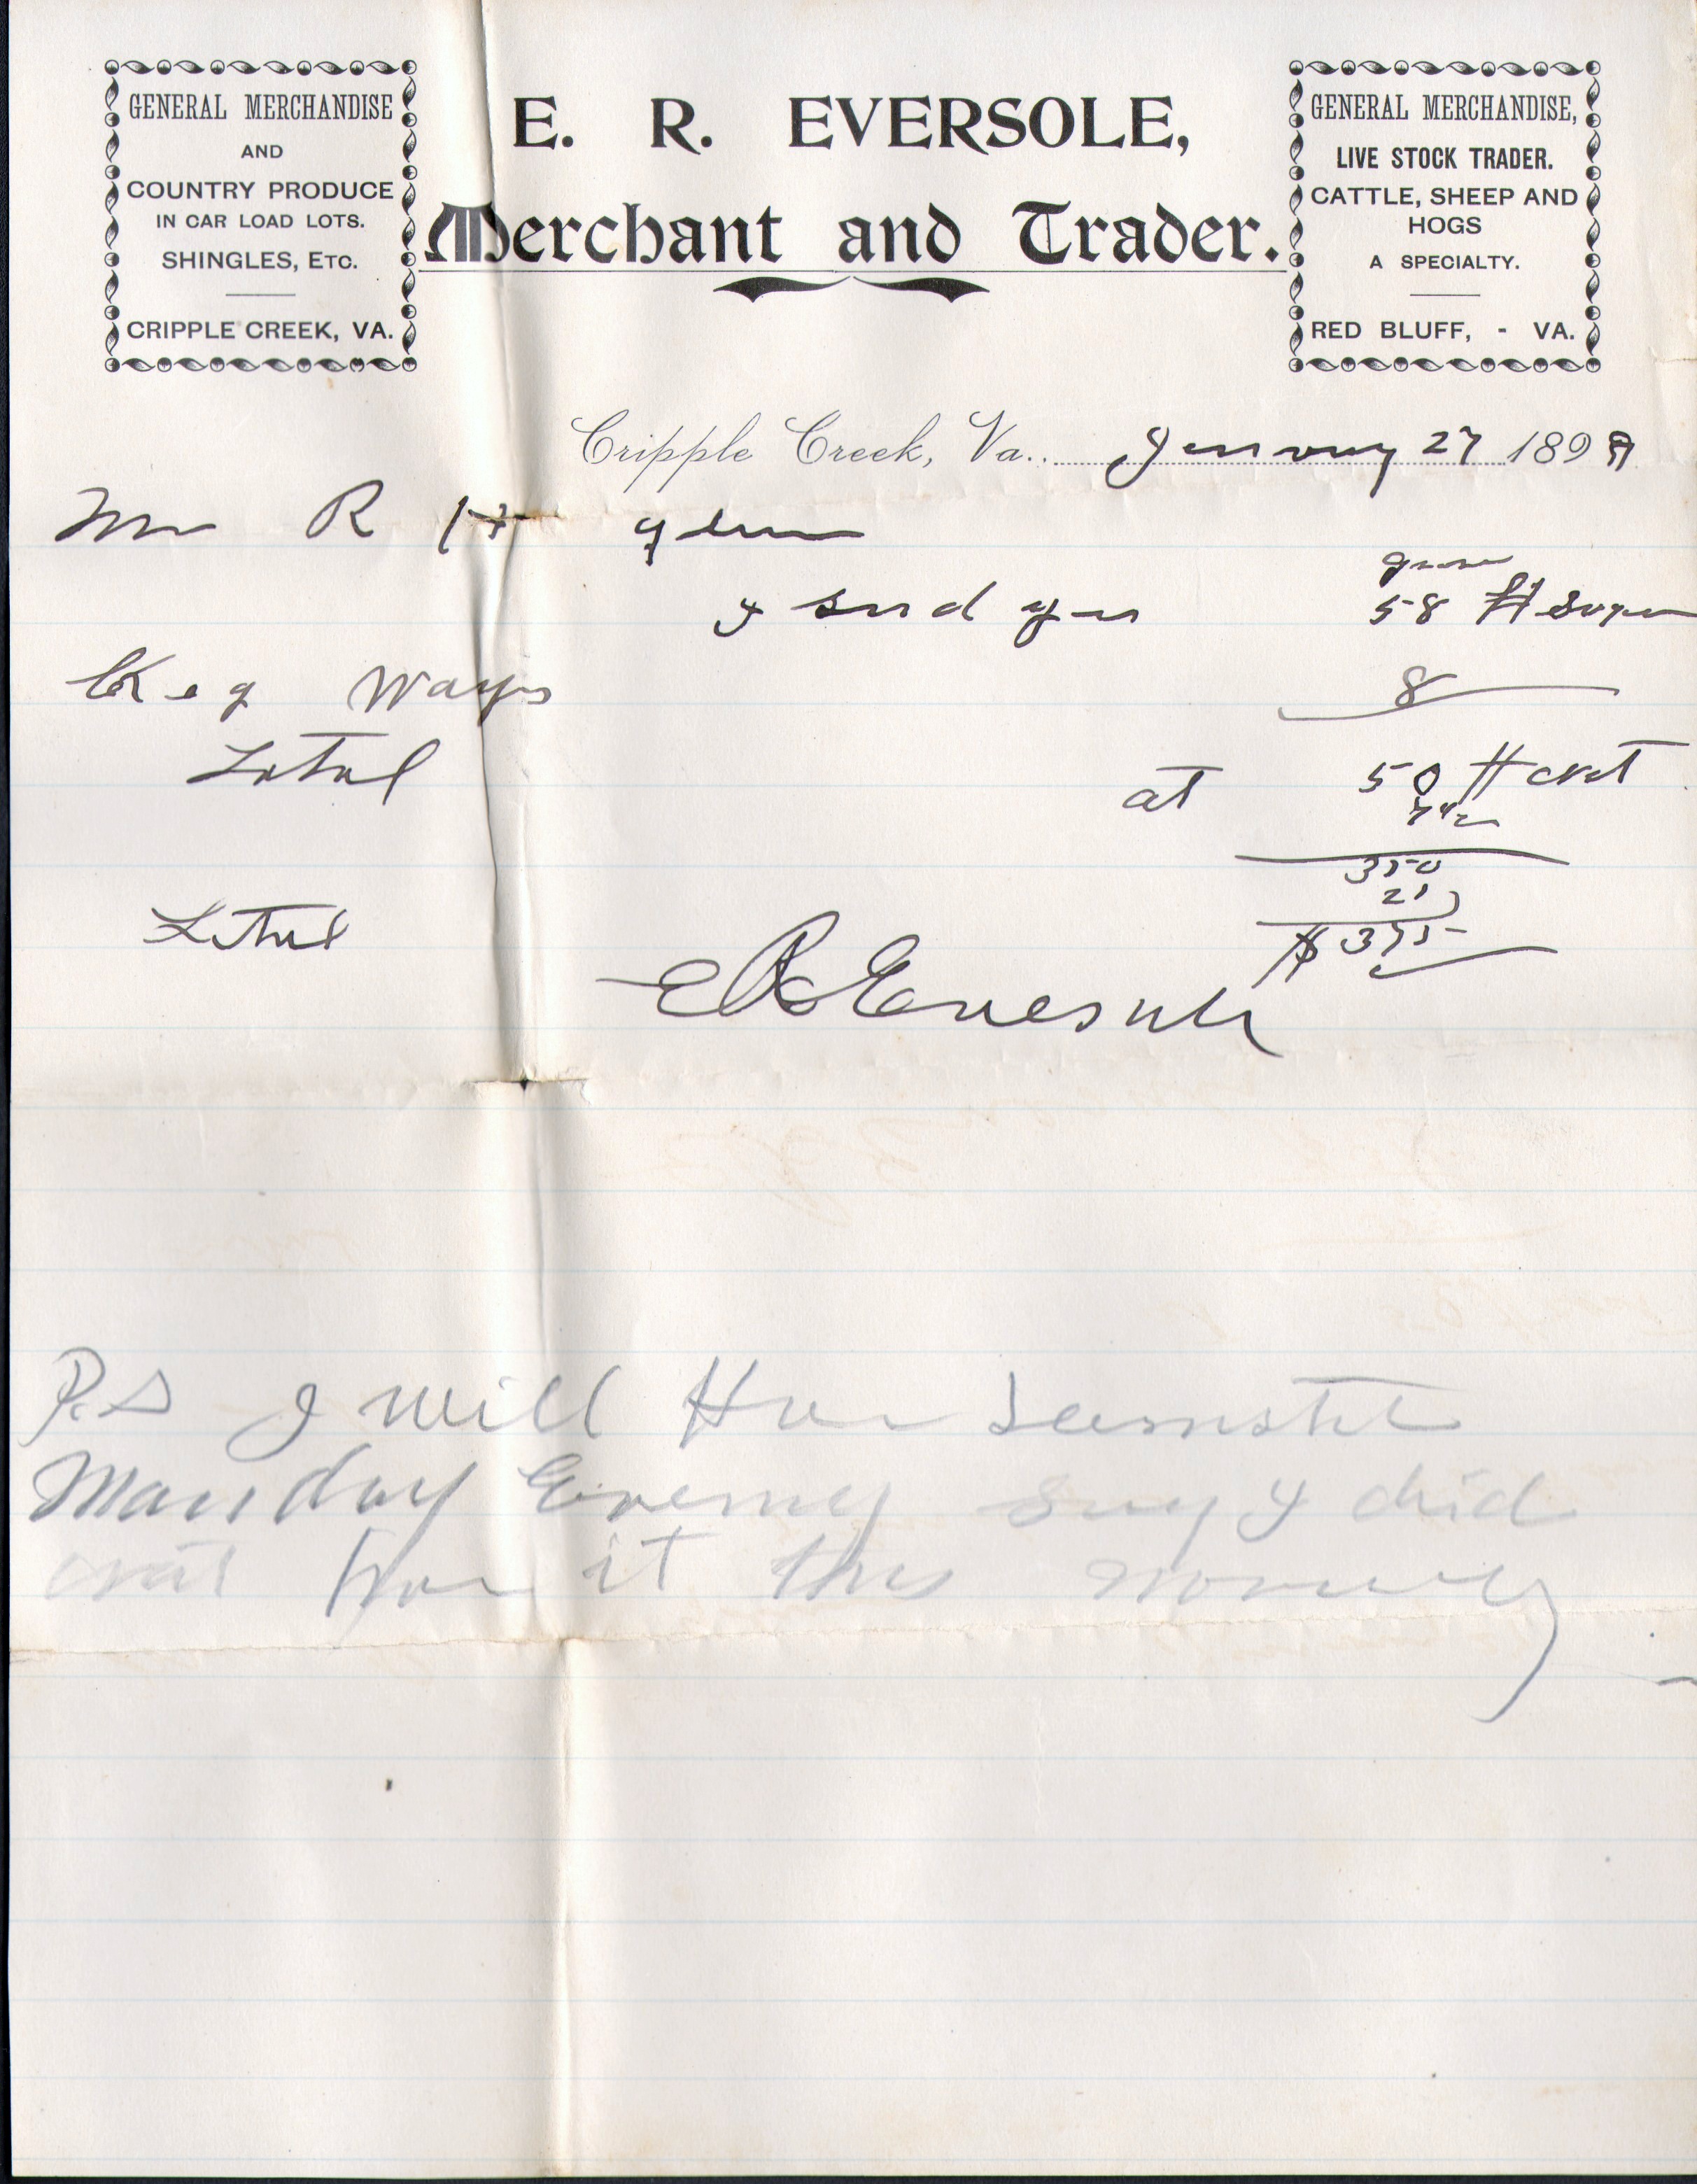 GENERAL MERCHANDISE
AND
COUNTRY PRODUCE
IN CAR LOAD LOTS.
SHINGLES, ETC.
CRIPPLE CREEK, VA.
E. R. EVERSOLE,
Merchant and Trader.
GENERAL MERCHANDISE,
LIVE STOCK TRADER.
CATTLE, SHEEP AND
HOGS
A SPECIALTY.
RED BLUFF, - VA.
Cripple Creek, Va. January 27 189
Mr R H
gross
I send you 58 #
Keg Ways 8
Total at 50 #
7 1/2
350
25
Total $ 375
E R Eversole
P.S I will Have
Monday Evening Say I did
not have it this morning